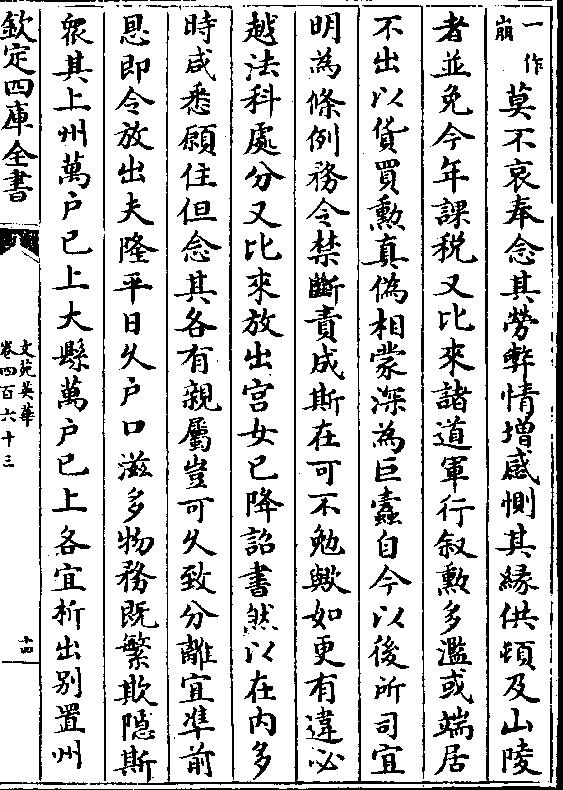 一作
崩
莫不哀奉念其勞幹情増感惻其縁供頓及山陵
者並免今年課税又比來諸道軍行叙勲多濫或端居
不出以貨買勲真偽相蒙深為巨蠧自今以後所司宜
明為條例務令禁斷責成斯在可不勉歟如更有違必
越法科處分又比來放出宫女已降詔書然以在内多
時咸悉願住但念其各有親屬豈可久致分離宜準前
恩即令放出夫隆平日久户口滋多物務既繁欺隠斯
衆其上州萬户已上大縣萬户已上各宜析出别置州
欽定四庫全書
文苑英華
卷四百六十三
十四